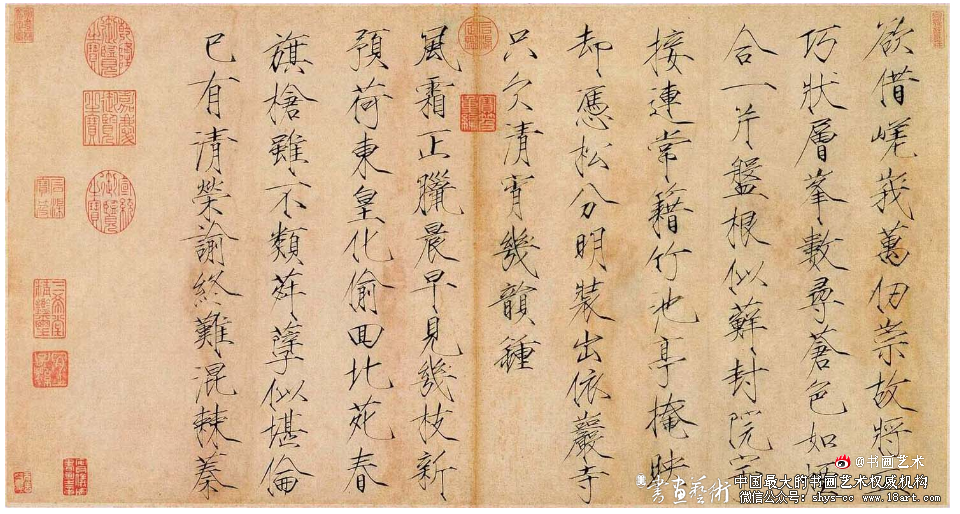 欲借嵯峨萬仞崇故將
巧狀層峯數尋蒼色如煙
合一片盤根似蘚封院宇
接連常籍竹池亭掩映
却憑松分明裝出依巖寺
只欠清宵幾韻鍾
風霜正臘晨早見幾枝新
預荷東皇化偷回北苑春
旗槍雖不類荈孽似堪倫
已有清榮諭終難混棘蓁
@书画艺术
書畫藝術
中国最大的书画艺术权威机构
微信公众号: shys-cc www.18art.com